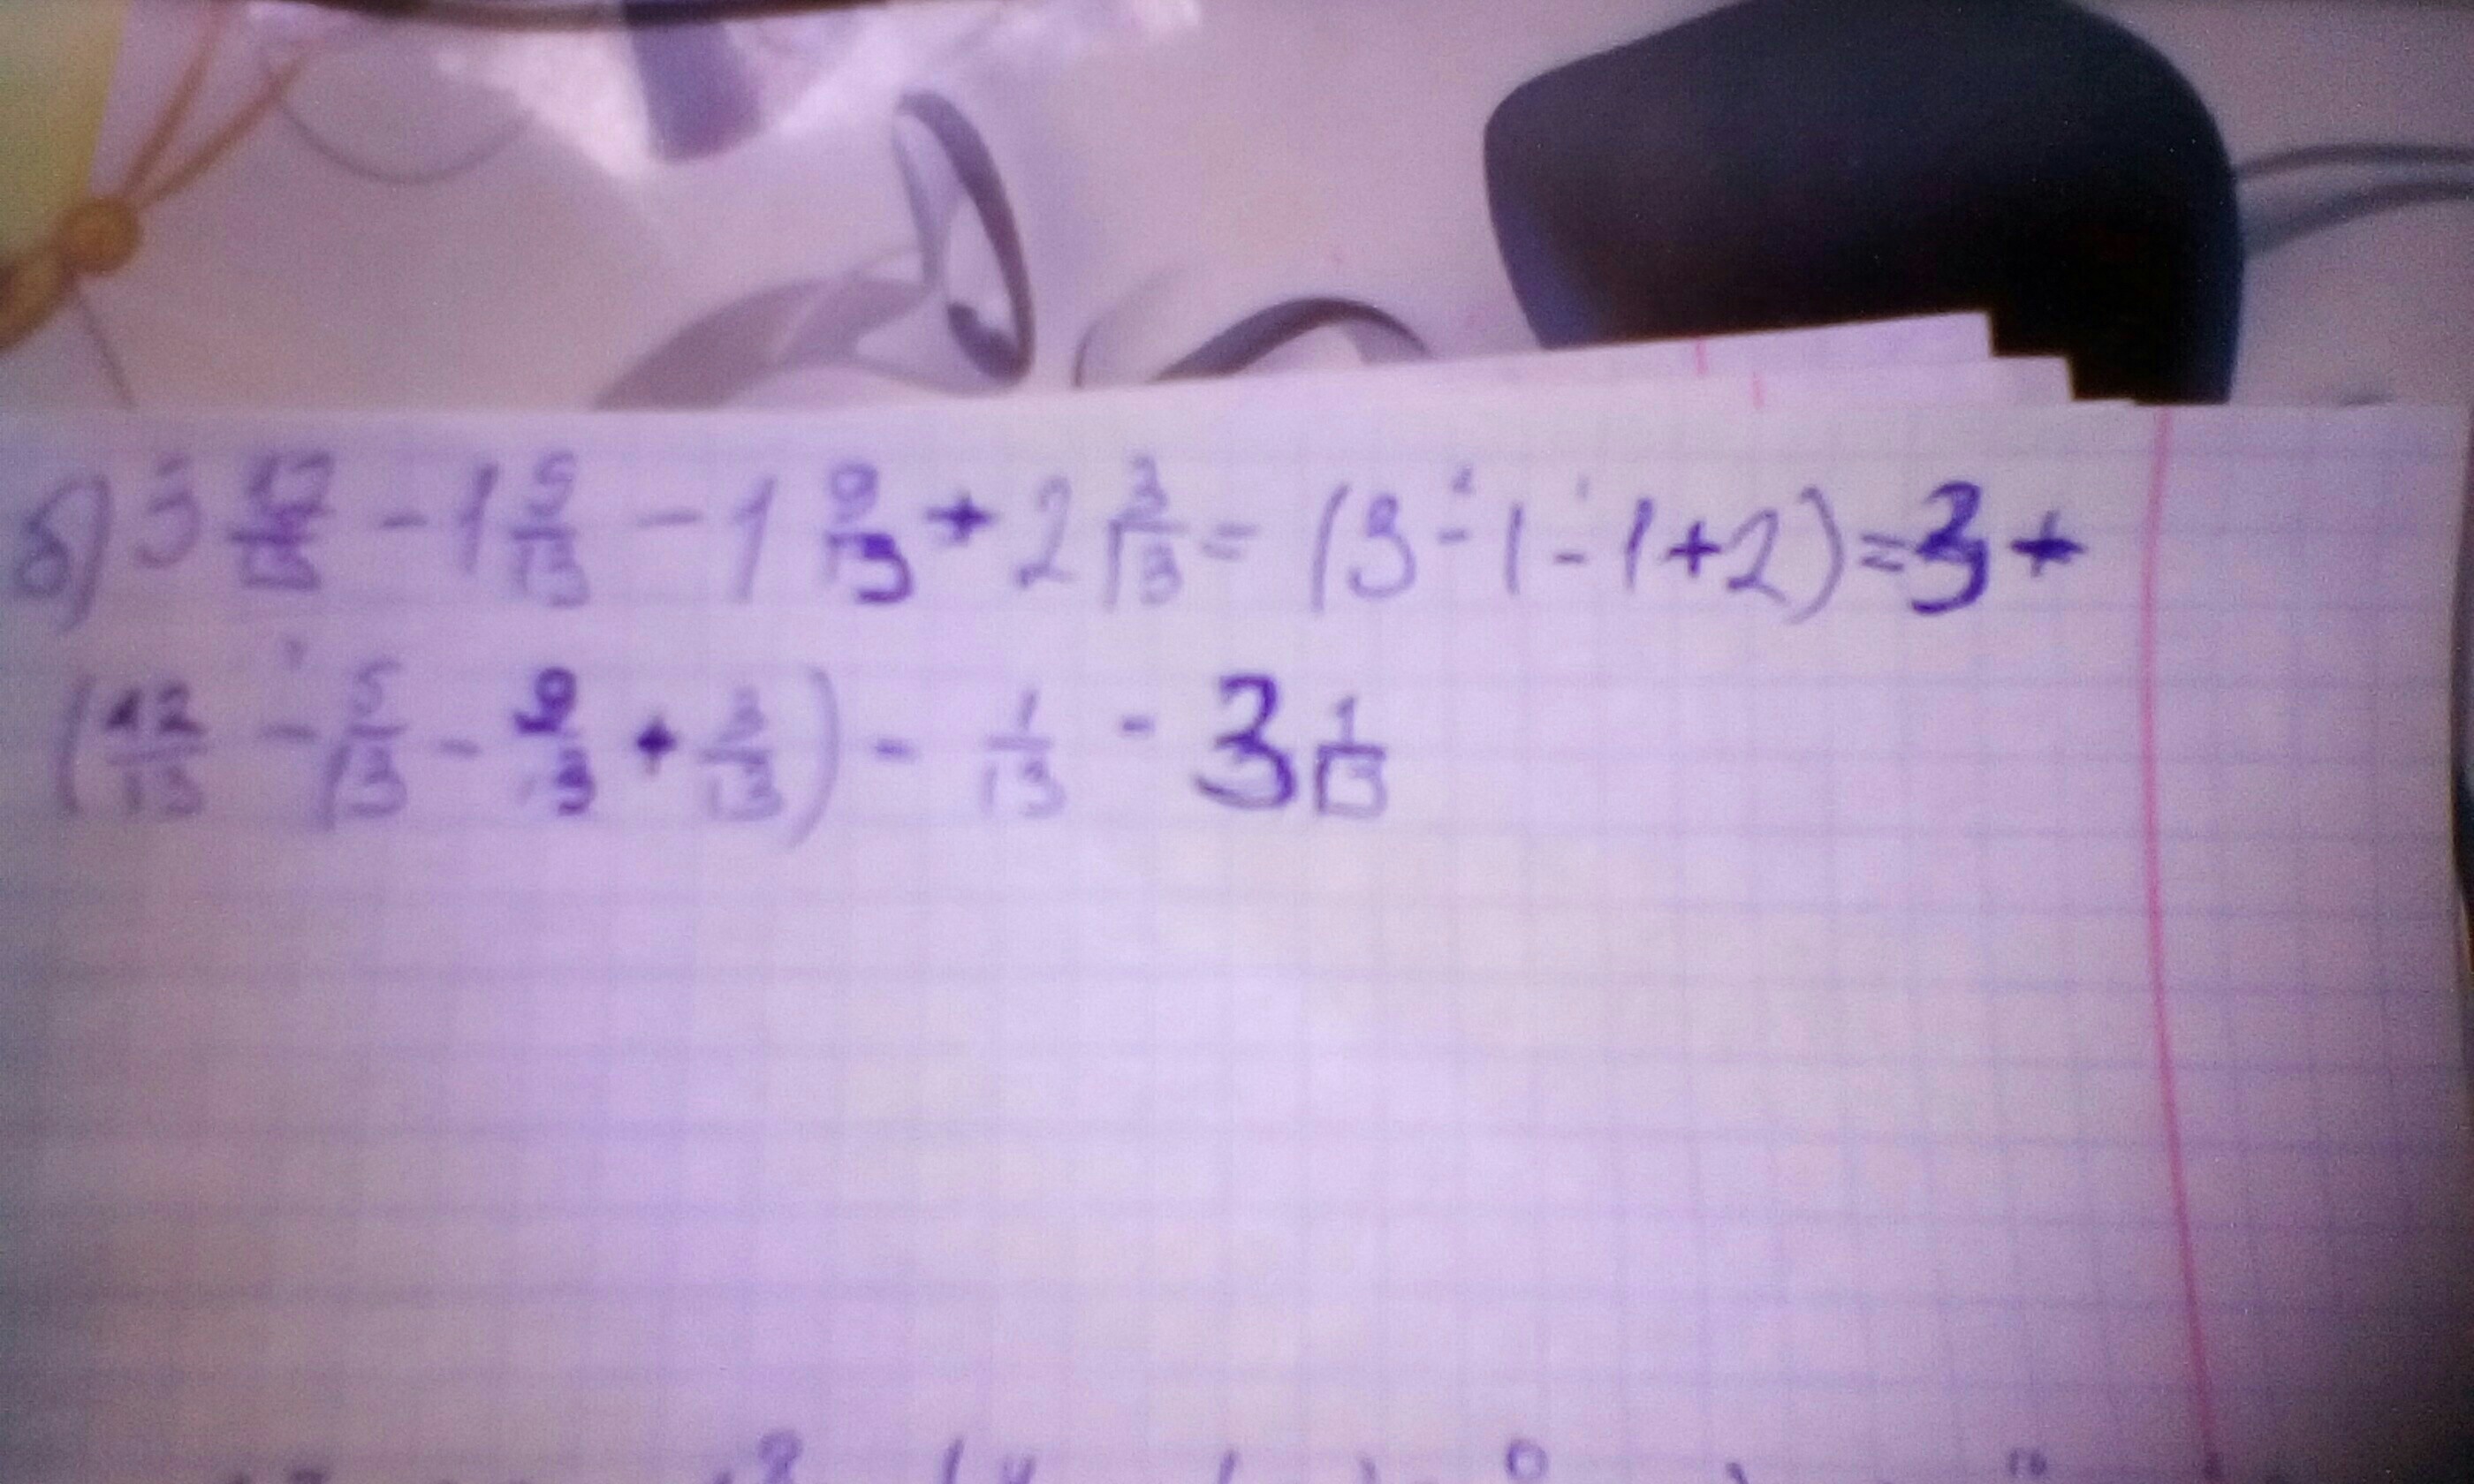 б) 3 12/13 - 1 5/13 - 1 9/13 + 2 3/13 = (3 - 1 - 1 + 2) = 3 +
(12/13 - 5/13 - 9/13 + 3/13) - 1/13 - 3 1/13